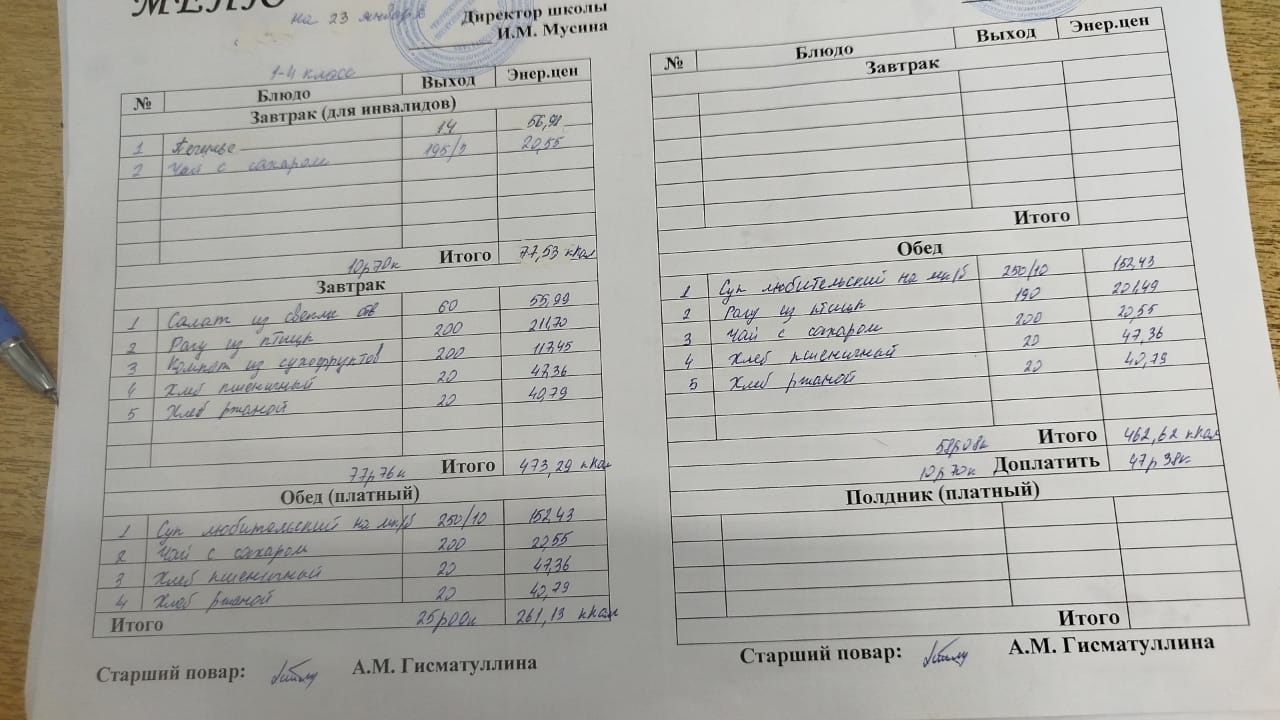 МЕНЮ
на 23 января
Директор школы
И.М. Мусина
1-4 класс
№ Блюдо Выход Энер.цен
Завтрак (для инвалидов)
1 Печенье 14 56,98
2 Чай с сахаром 195/5 20,55
10р70к Итого 77,53 кКал
Завтрак
1 Салат из свеклы отв 60 55,99
2 Рагу из птицы 200 211,70
3 Компот из сухофруктов 200 117,45
4 Хлеб пшеничный 20 47,36
5 Хлеб ржаной 20 40,79
77р76к Итого 473,29 кКал
Обед (платный)
1 Суп любительский на мк/б 250/10 152,43
2 Чай с сахаром 200 20,55
3 Хлеб пшеничный 20 47,36
4 Хлеб ржаной 20 40,79
Итого 25р00к 261,13 кКал
Старший повар: А.М. Гисматуллина
№ Блюдо Выход Энер.цен
Завтрак
Итого
Обед
1 Суп любительский на мк/б 250/10 152,43
2 Рагу из птицы 190 201,49
3 Чай с сахаром 200 20,55
4 Хлеб пшеничный 20 47,36
5 Хлеб ржаной 20 40,79
58р08к Итого 462,62 кКал
10р70к Доплатить 47р38к
Полдник (платный)
Итого
Старший повар: А.М. Гисматуллина